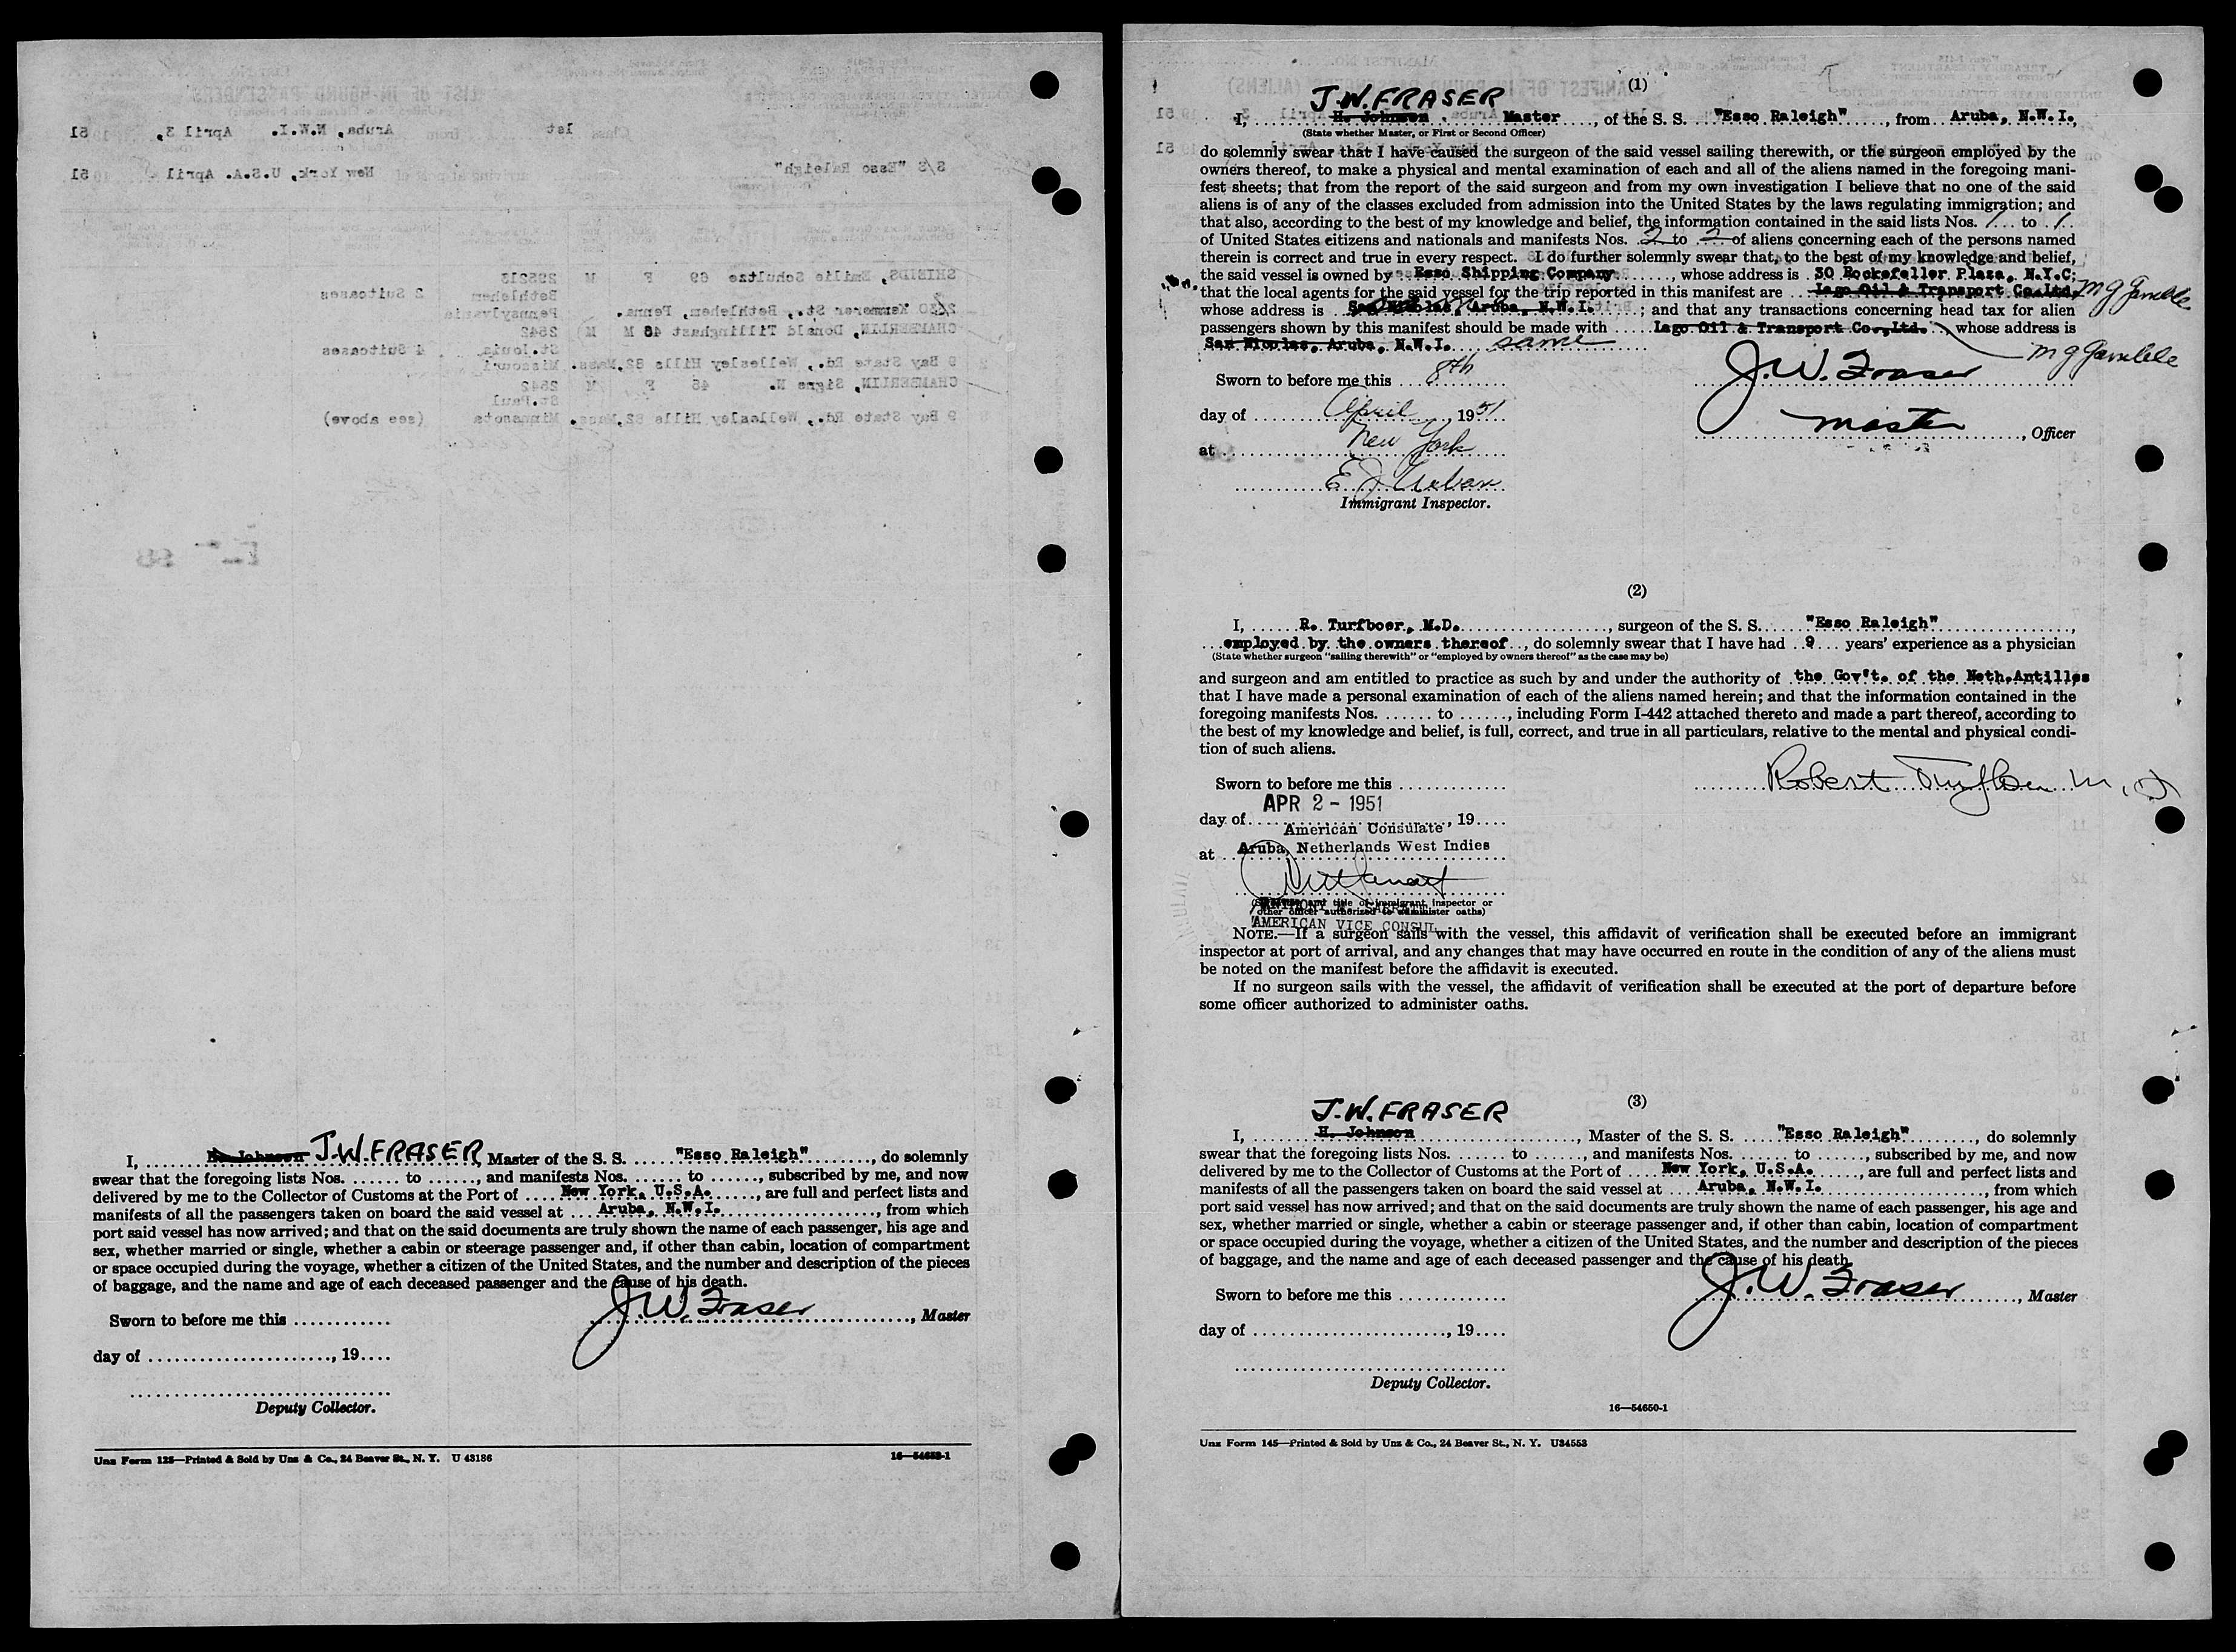 LIST OF IN-BOUND PASSENGERS
1st Aruba, N.W.I. April 3, 51
S/S "Esso Raleigh" New York, U.S.A. April 51
SHIELDS, Emilie Schultze 69 F M 295213
Bethlehem 2 Suitcases
Kemmerer St., Bethlehem, Penna. Pennsylvania
CHAMBERLIN, Donald Tillinghast 48 M M 2642
St. Louis 4 Suitcases
9 Bay State Rd., Wellesley Hills 82, Mass. Missouri
CHAMBERLIN, Signe N. 45 F M 2642
St. Paul
9 Bay State Rd., Wellesley Hills 82, Mass. Minnesota (see above)
I, H. Johnson J.W. FRASER, Master of the S. S. "Esso Raleigh", do solemnly
swear that the foregoing lists Nos. ....... to ......, and manifests Nos. ....... to ......, subscribed by me, and now
delivered by me to the Collector of Customs at the Port of New York, U.S.A., are full and perfect lists and
manifests of all the passengers taken on board the said vessel at Aruba, N.W.I., from which
port said vessel has now arrived; and that on the said documents are truly shown the name of each passenger, his age and
sex, whether married or single, whether a cabin or steerage passenger and, if other than cabin, location of compartment
or space occupied during the voyage, whether a citizen of the United States, and the number and description of the pieces
of baggage, and the name and age of each deceased passenger and the cause of his death.
J.W. Fraser, Master
Sworn to before me this ............
day of ......................., 19....
Deputy Collector.
Unz Form 125—Printed & Sold by Unz & Co., 24 Beaver St., N. Y. U 43186 16—54652-1
(1)
J.W. FRASER
I, H. Johnson . Master, of the S. S. "Esso Raleigh", from Aruba, N.W.I.,
(State whether Master, or First or Second Officer)
do solemnly swear that I have caused the surgeon of the said vessel sailing therewith, or the surgeon employed by the
owners thereof, to make a physical and mental examination of each and all of the aliens named in the foregoing mani-
fest sheets; that from the report of the said surgeon and from my own investigation I believe that no one of the said
aliens is of any of the classes excluded from admission into the United States by the laws regulating immigration; and
that also, according to the best of my knowledge and belief, the information contained in the said lists Nos. 1 to 1
of United States citizens and nationals and manifests Nos. 2 to 2 of aliens concerning each of the persons named
therein is correct and true in every respect. I do further solemnly swear that, to the best of my knowledge and belief,
the said vessel is owned by Esso Shipping Company, whose address is 30 Rockefeller Plaza, N.Y.C;
that the local agents for the said vessel for the trip reported in this manifest are Lago Oil & Transport Co.Ltd. M G Gamble
whose address is San Nicolas, Aruba, N.W.I.; and that any transactions concerning head tax for alien
passengers shown by this manifest should be made with Lago Oil & Transport Co., Ltd. whose address is
San Nicolas, Aruba, N.W.I. same M G Gamble
Sworn to before me this 8th J.W. Fraser
day of April, 1951 Master, Officer
at New York
Immigrant Inspector.
(2)
I, R. Turfboer, M.D., surgeon of the S. S. "Esso Raleigh",
employed by the owners thereof, do solemnly swear that I have had 9 years' experience as a physician
(State whether surgeon "sailing therewith" or "employed by owners thereof" as the case may be)
and surgeon and am entitled to practice as such by and under the authority of the Gov't. of the Neth.Antilles
that I have made a personal examination of each of the aliens named herein; and that the information contained in the
foregoing manifests Nos. ....... to ......, including Form I-442 attached thereto and made a part thereof, according to
the best of my knowledge and belief, is full, correct, and true in all particulars, relative to the mental and physical condi-
tion of such aliens.
Sworn to before me this ............. Robert Turfboer M.D.
APR 2 - 1951
day of ........................, 19....
American Consulate
at Aruba, Netherlands West Indies
(Signature and title of immigrant inspector or
other officer authorized to administer oaths)
AMERICAN VICE CONSUL
NOTE.—If a surgeon sails with the vessel, this affidavit of verification shall be executed before an immigrant
inspector at port of arrival, and any changes that may have occurred en route in the condition of any of the aliens must
be noted on the manifest before the affidavit is executed.
If no surgeon sails with the vessel, the affidavit of verification shall be executed at the port of departure before
some officer authorized to administer oaths.
(3)
J.W. FRASER
I, H. Johnson, Master of the S. S. "Esso Raleigh", do solemnly
swear that the foregoing lists Nos. ....... to ......, and manifests Nos. ....... to ......, subscribed by me, and now
delivered by me to the Collector of Customs at the Port of New York, U.S.A., are full and perfect lists and
manifests of all the passengers taken on board the said vessel at Aruba, N.W.I., from which
port said vessel has now arrived; and that on the said documents are truly shown the name of each passenger, his age and
sex, whether married or single, whether a cabin or steerage passenger and, if other than cabin, location of compartment
or space occupied during the voyage, whether a citizen of the United States, and the number and description of the pieces
of baggage, and the name and age of each deceased passenger and the cause of his death.
Sworn to before me this ............. J.W. Fraser, Master
day of ........................, 19....
Deputy Collector.
16—54650-1
Unz Form 145—Printed & Sold by Unz & Co., 24 Beaver St., N. Y. U34553